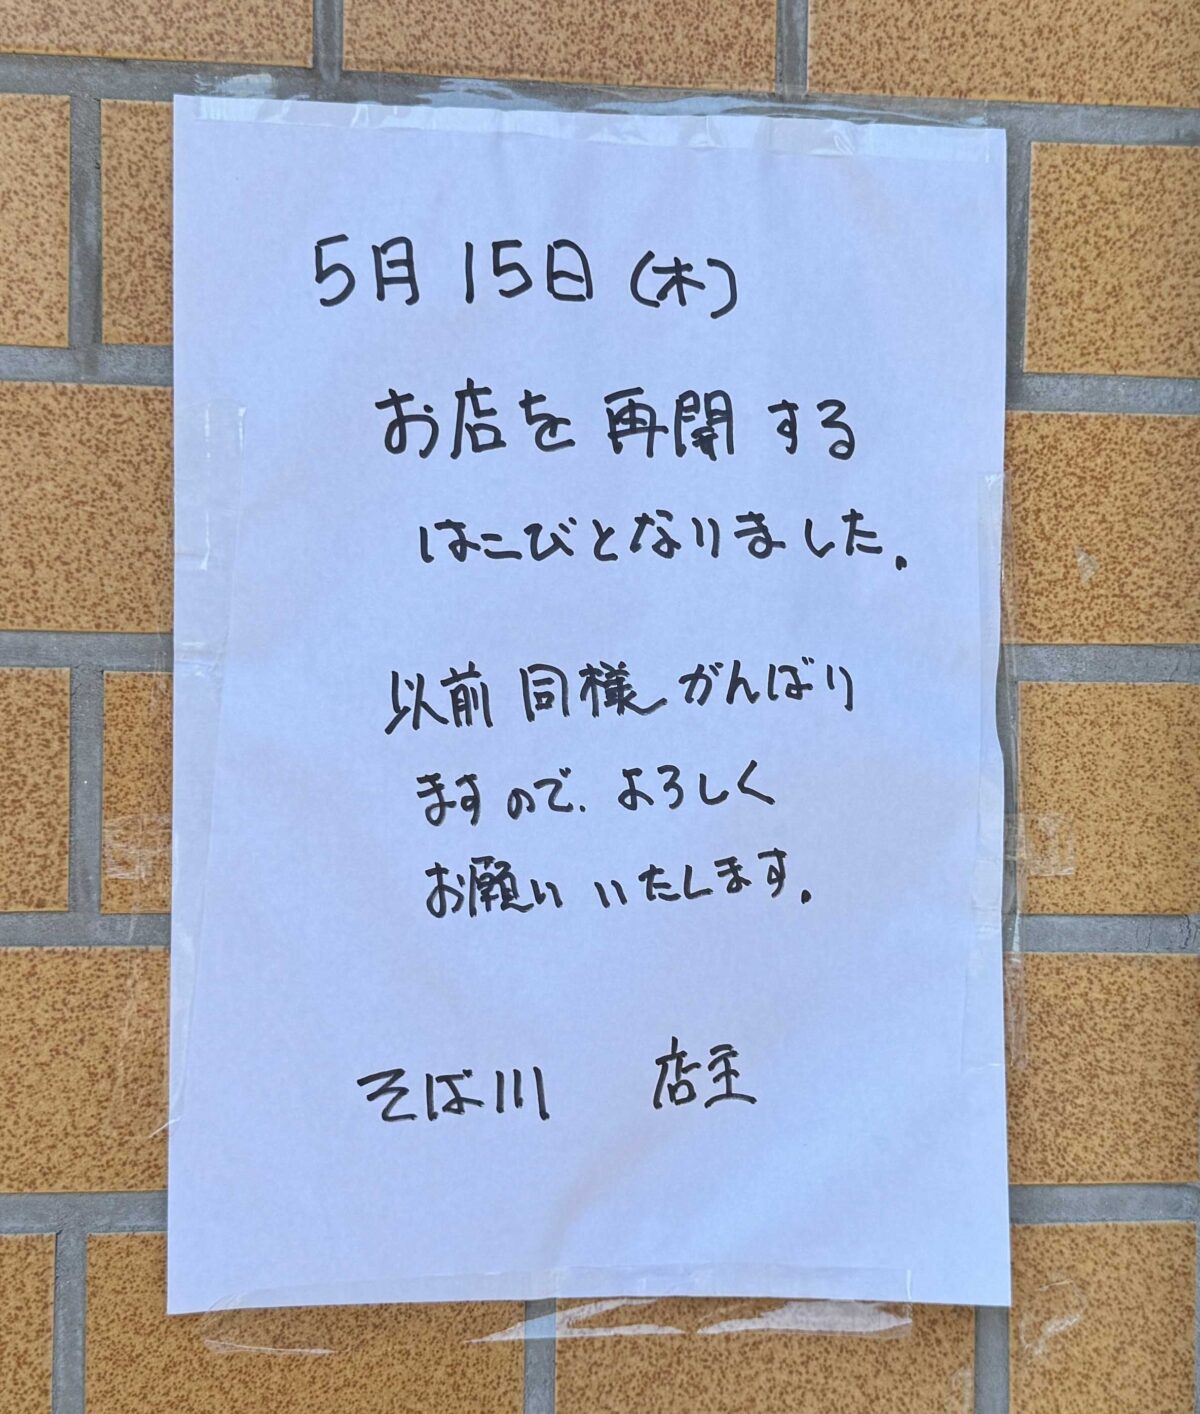 5月15日(木)
お店を再開する
はこびとなりました.
以前同様がんばり
ますので、よろしく
お願いいたします.
そば川 店主